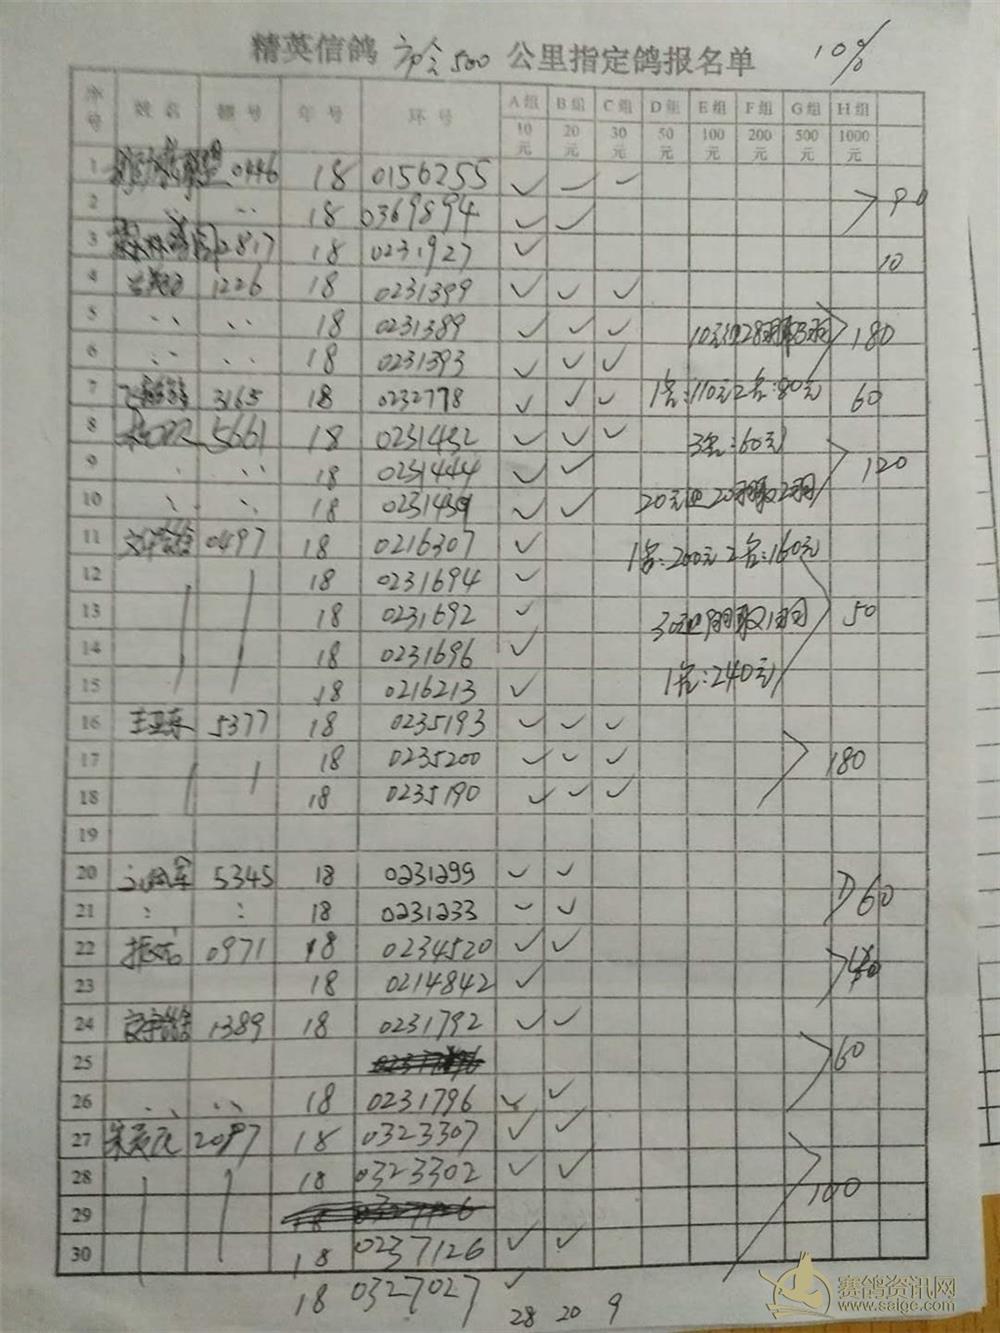 精英信鸽 500 公里指定鸽报名单 10%
序号 姓名 棚号 年号 环号 A组 B组 C组 D组 E组 F组 G组 H组
10元 20元 30元 50元 100元 200元 500元 1000元
1 0446 18 0156255 ✓ ✓ ✓
2 18 0369894 ✓ ✓ 90
3 2817 18 0231927 ✓ 10
4 1226 18 0231399 ✓ ✓ ✓
5 18 0231389 ✓ ✓ ✓ 180
6 18 0231393 ✓ ✓ ✓
7 3165 18 0232778 ✓ ✓ ✓ 1名:110元2名:80元 60
8 5661 18 0231432 ✓ ✓ ✓ 3名:60元
9 18 0231444 ✓ ✓ 120
10 18 0231439 ✓ ✓ 20元组20羽取2羽
11 0497 18 0216307 ✓ 1名:200元2名:160元
12 18 0231694 ✓
13 18 0231692 ✓ 30元组9羽取1羽 50
14 18 0231696 ✓
15 18 0216213 ✓ 1名:240元
16 王亚东 5377 18 0235193 ✓ ✓ ✓
17 18 0235200 ✓ ✓ ✓ 180
18 18 0235190 ✓ ✓ ✓
19
20 5345 18 0231299 ✓ ✓
21 18 0231233 ✓ ✓ 60
22 0971 18 0234520 ✓ ✓
23 18 0214842 ✓
24 1389 18 0231792 ✓ ✓
25 60
26 18 0231796 ✓ ✓
27 2097 18 0323307 ✓ ✓
28 18 0323302 ✓ ✓ 100
29
30 18 0237126 ✓ ✓
18 0327027 ✓
28 20 9
赛鸽资讯网
www.saigc.com